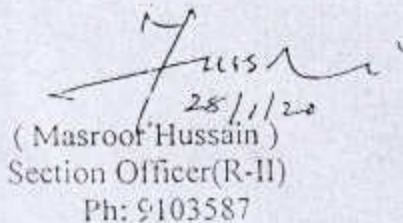 28/1/20
( Masroof Hussain )
Section Officer(R-II)
Ph: 9103587